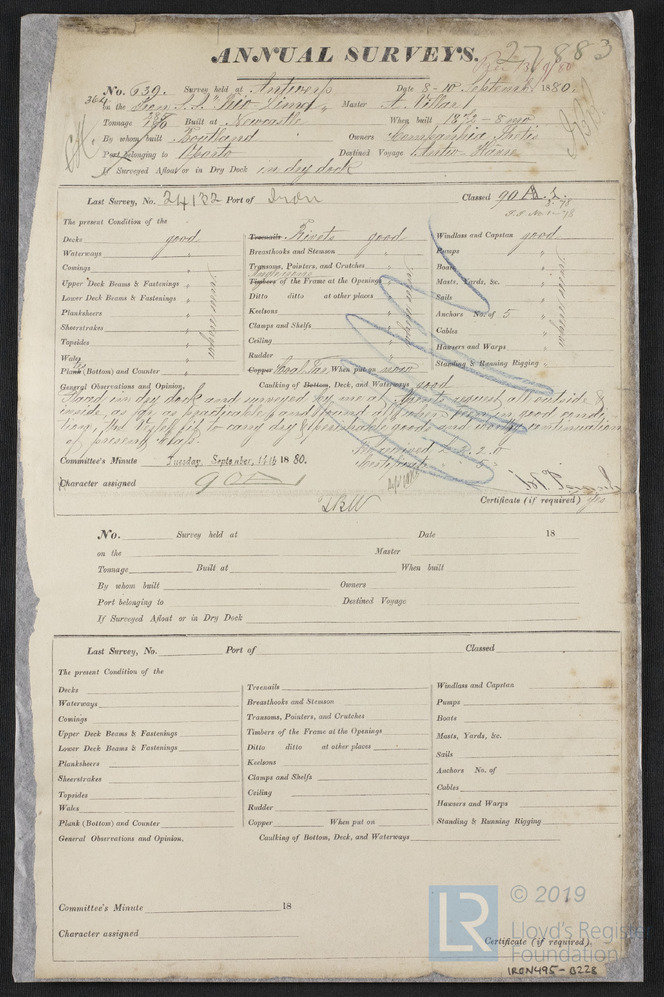 27883
ANNUAL SURVEYS.
No. 639. Survey held at Antwerp Date 8-10 September 1880.
364 on the Iron S.S. "Rio Lima" Master A.
Tonnage Built at Newcastle When built 1872 - 8 mo
By whom built Boutland Owners Companhia
Port belonging to Oporto Destined Voyage
If Surveyed Afloat or in Dry Dock in dry dock
Last Survey, No. 24132 Port of Iron Classed 90 A.1.
The present Condition of the
Decks good Treenails Rivets good Windlass and Capstan good
Waterways " Breasthooks and Stemson Pumps "
Comings " Transoms, Pointers, and Crutches Boats "
Upper Deck Beams & Fastenings " Timbers of the Frame at the Openings Masts, Yards, &c. "
Lower Deck Beams & Fastenings " Ditto ditto at other places Sails "
Planksheers " Keelsons Anchors No. of 5 "
Sheerstrakes " Clamps and Shelfs Cables "
Topsides " Ceiling Hawsers and Warps "
Wales Rudder Standing & Running Rigging "
where seen
where seen
where seen
Plank (Bottom) and Counter " Copper Coal Tar When put on now
General Observations and Opinion. Caulking of Bottom, Deck, and Waterways good
Placed in dry dock and surveyed by me at Agents request all outside &
inside, as far as practicable, and found all when seen in good condi-
tion, the Vessel fit to carry dry & perishable goods and continuation
of present class.
Received £ 2.2.0
Committee's Minute Tuesday, September, 14th 1880. Certificate
Character assigned 90 A 1
Certificate (if required) yes
No. Survey held at Date 18
on the Master
Tonnage Built at When built
By whom built Owners
Port belonging to Destined Voyage
If Surveyed Afloat or in Dry Dock
Last Survey, No. Port of Classed
The present Condition of the
Decks Treenails Windlass and Capstan
Waterways Breasthooks and Stemson Pumps
Comings Transoms, Pointers, and Crutches Boats
Upper Deck Beams & Fastenings Timbers of the Frame at the Openings Masts, Yards, &c.
Lower Deck Beams & Fastenings Ditto ditto at other places Sails
Planksheers Keelsons Anchors No. of
Sheerstrakes Clamps and Shelfs Cables
Topsides Ceiling Hawsers and Warps
Wales Rudder Standing & Running Rigging
Plank (Bottom) and Counter Copper When put on
General Observations and Opinion. Caulking of Bottom, Deck, and Waterways
Committee's Minute 18
Character assigned
Certificate (if required).
LR © 2019
Lloyd's Register
Foundation
IRON495-0228